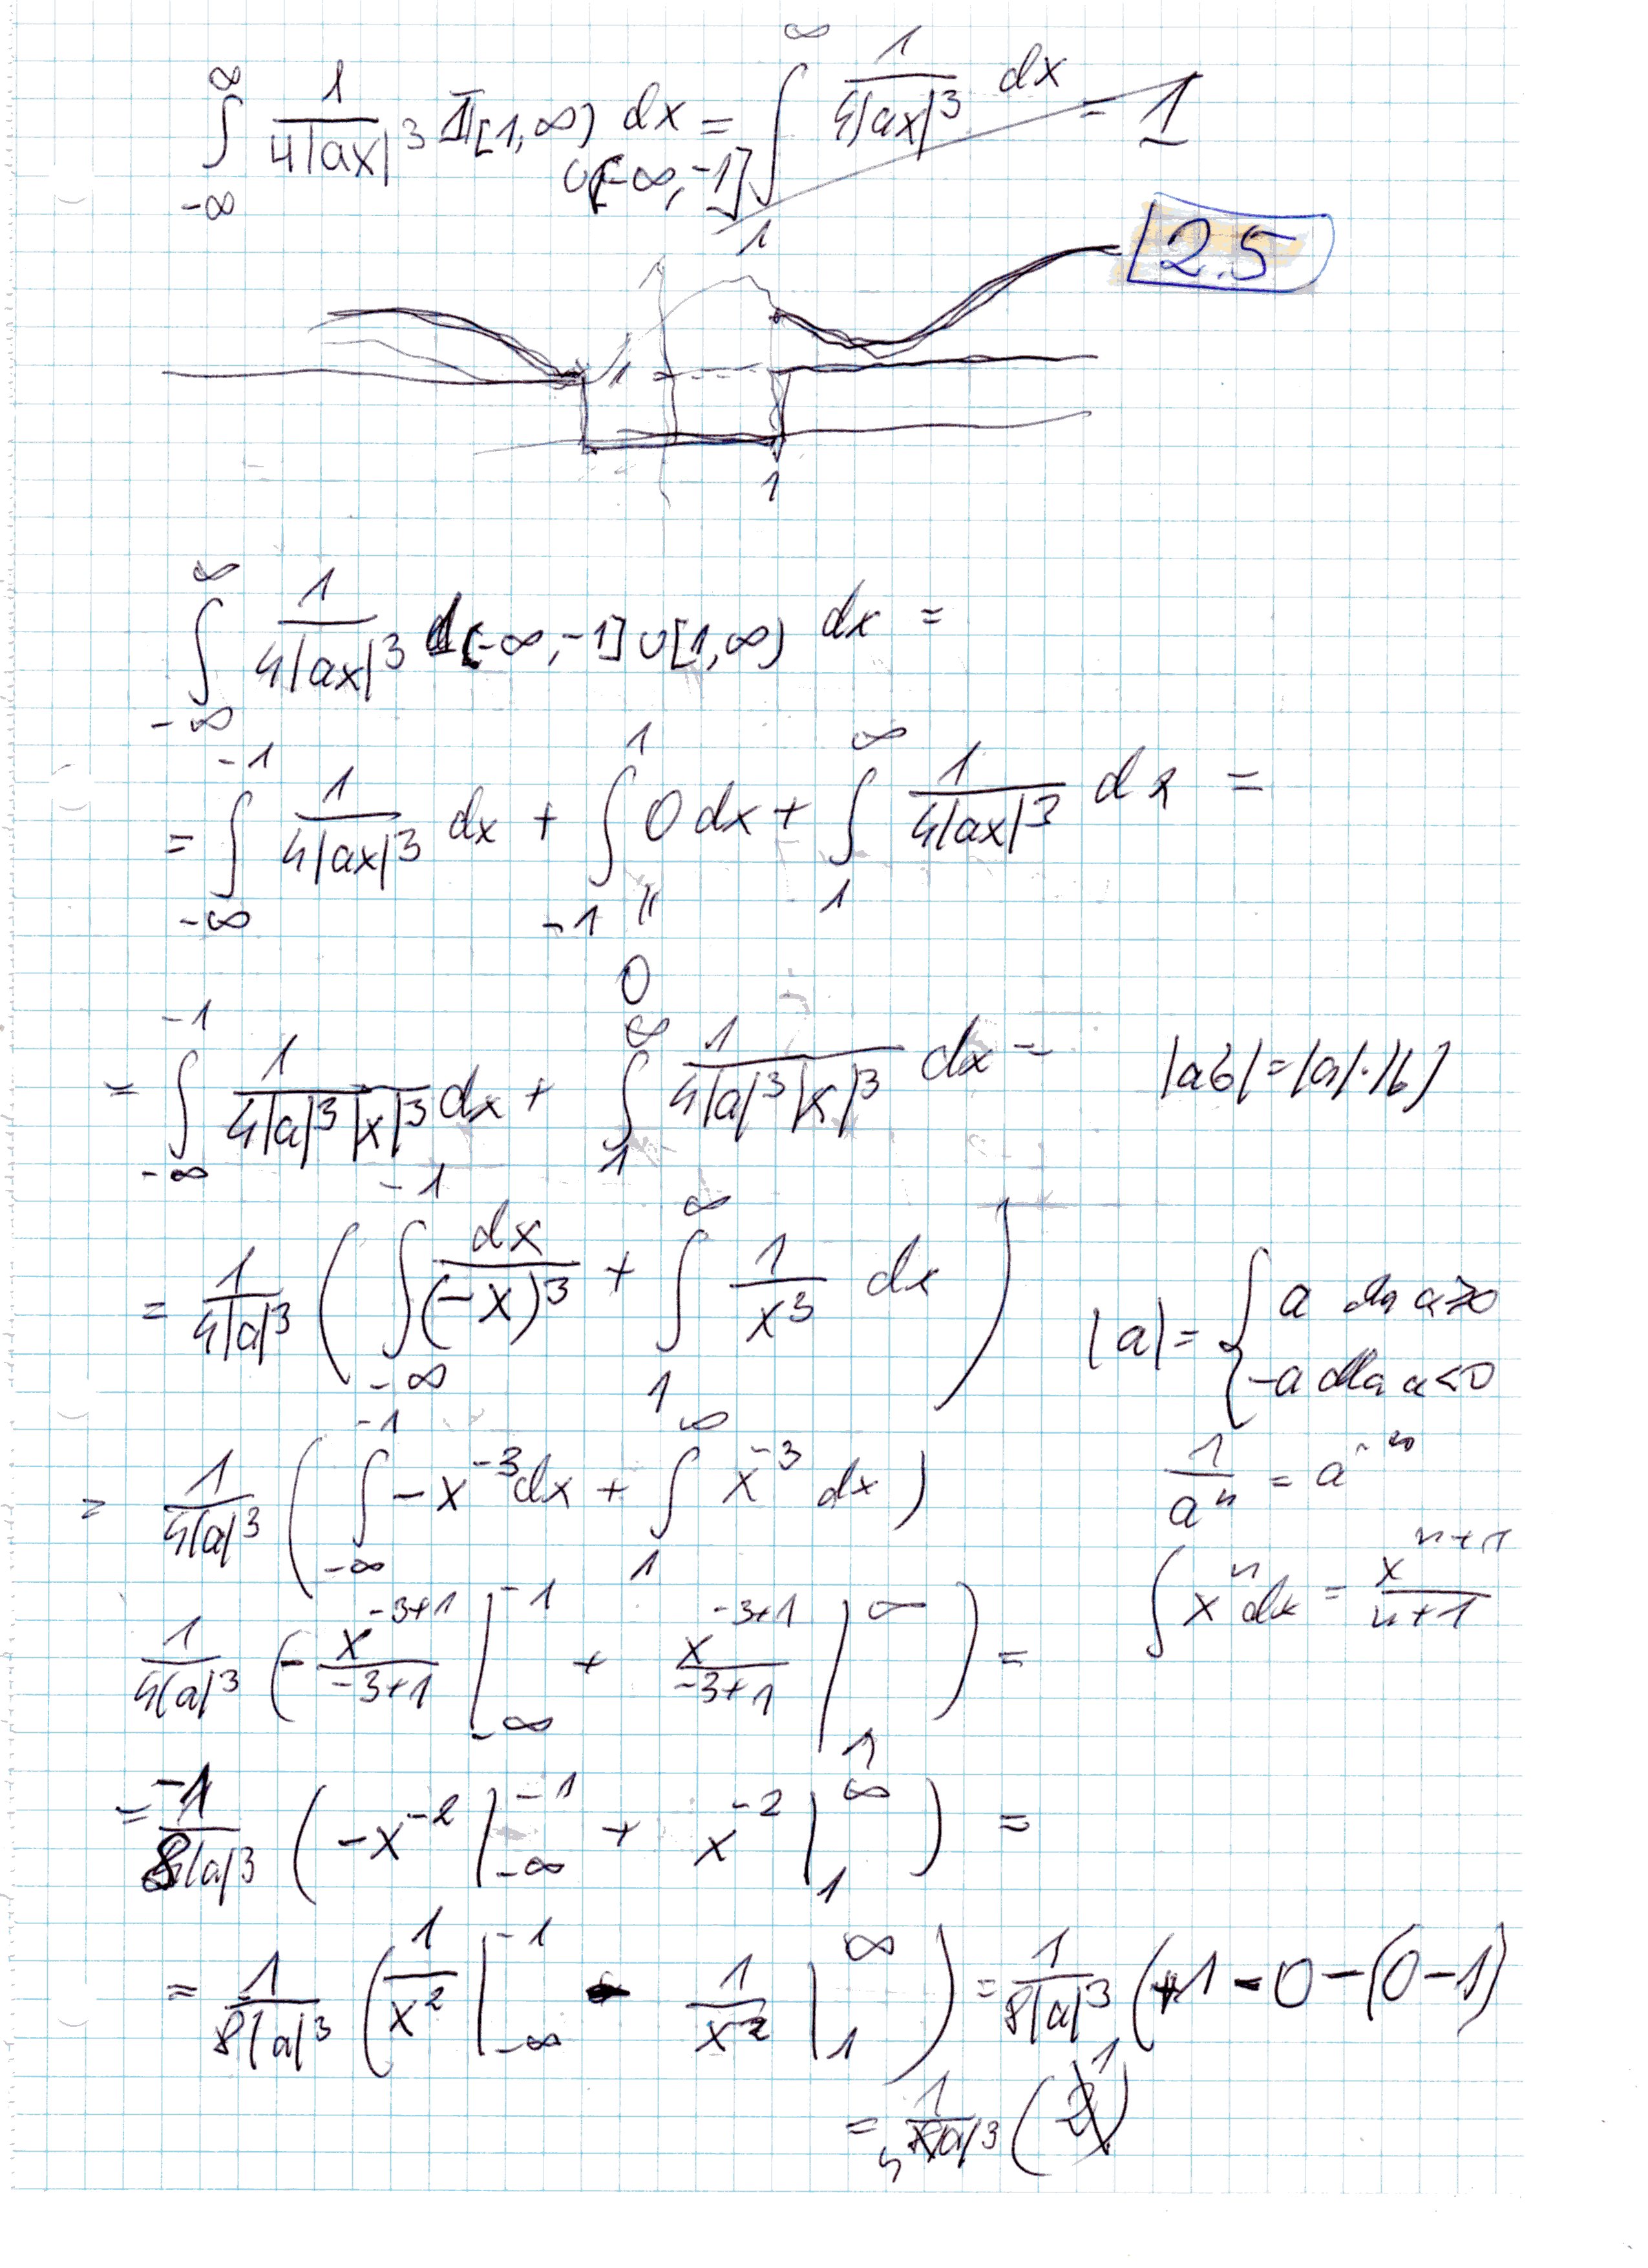 ∫_{-∞}^{∞} 1/(4|ax|³) 𝟙[1,∞)∪(-∞,-1] dx = ∫_{1}^{∞} 1/(4|ax|³) dx = 1
2.5
1
1
∫_{-∞}^{∞} 1/(4|ax|³) 𝟙(-∞,-1]∪[1,∞) dx =
= ∫_{-∞}^{-1} 1/(4|ax|³) dx + ∫_{-1}^{1} 0 dx + ∫_{1}^{∞} 1/(4|ax|³) dx =
"
0
= ∫_{-∞}^{-1} 1/(4|a|³|x|³) dx + ∫_{1}^{∞} 1/(4|a|³|x|³) dx = |ab| = |a|·|b|
= 1/(4|a|³) ( ∫_{-∞}^{-1} dx/(-x)³ + ∫_{1}^{∞} 1/x³ dx ) |a| = { a dla a≥0
-a dla a<0
= 1/(4|a|³) ( ∫_{-∞}^{-1} -x^{-3} dx + ∫_{1}^{∞} x^{-3} dx ) 1/aⁿ = a^{-n}
∫ xⁿ dx = x^{n+1}/(n+1)
1/(4|a|³) ( - x^{-3+1}/(-3+1) |_{-∞}^{-1} + x^{-3+1}/(-3+1) |_{1}^{∞} ) =
= -1/(8|a|³) ( -x^{-2} |_{-∞}^{-1} + x^{-2} |_{1}^{∞} ) =
= 1/(8|a|³) ( 1/x² |_{-∞}^{-1} - 1/x² |_{1}^{∞} ) = 1/(8|a|³) (+1-0-(0-1)
= 1/(4|a|³) (1)